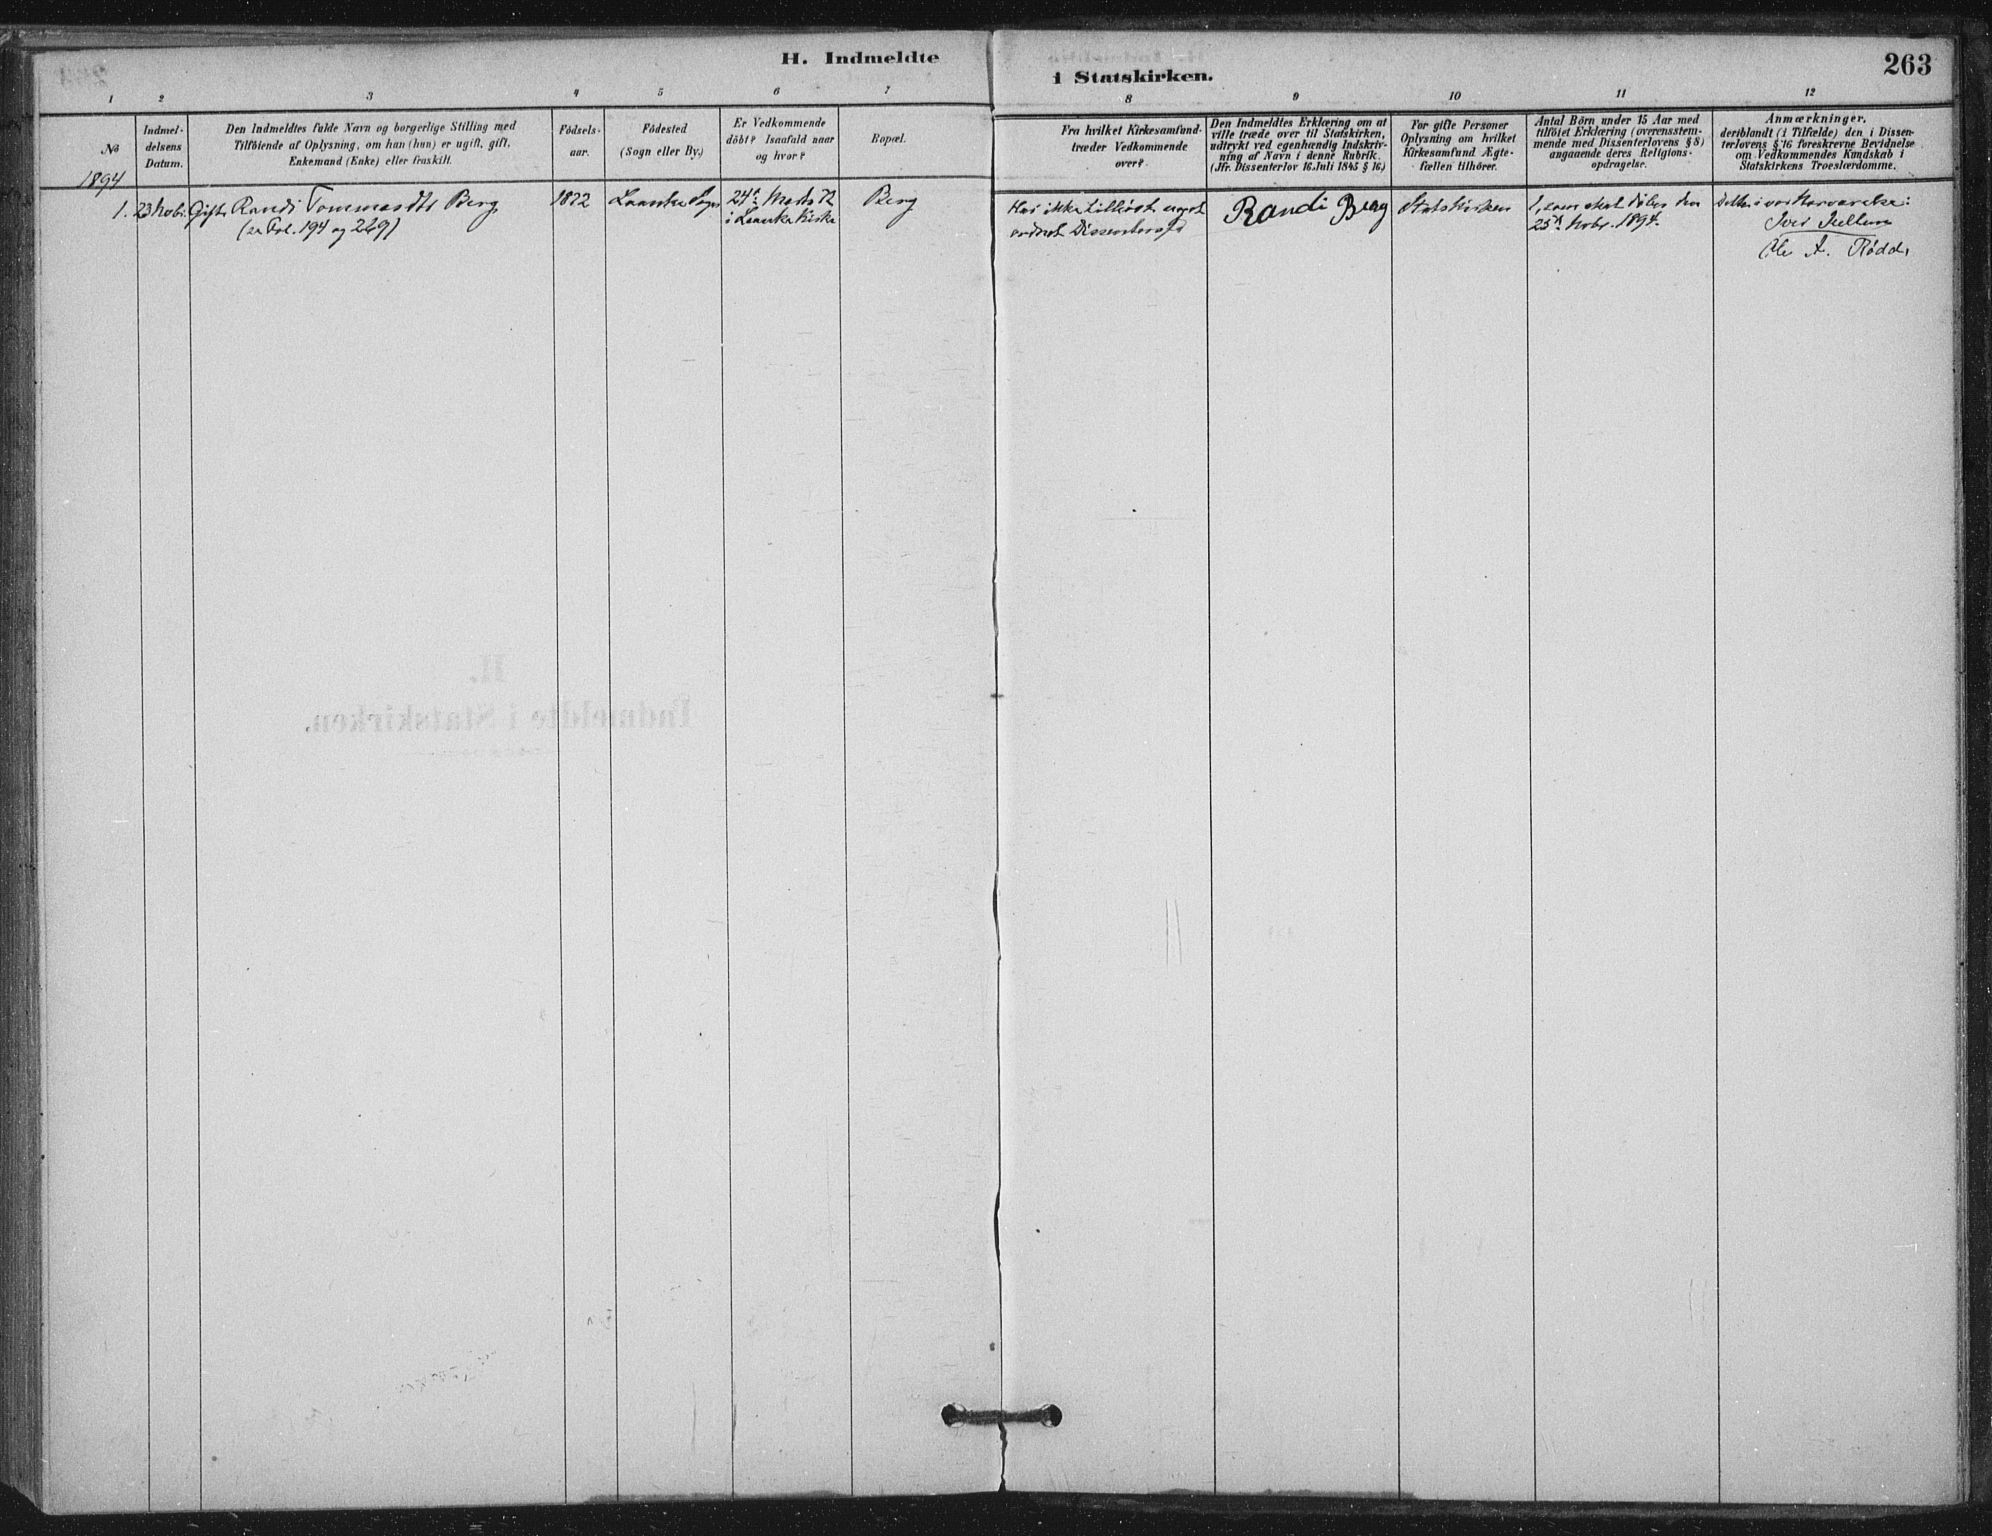 H. Indmeldte
i Statskirken.
263
1 2 3 4 5 6 7 8 9 10 11 12
No
Indmel-
delsens
Datum.
Den Indmeldtes fulde Navn og borgerlige Stilling med
Tilföiende af Oplysning, om han (hun) er ugift, gift,
Enkemand (Enke) eller fraskilt.
Födsels-
aar.
Födested
(Sogn eller By.)
Er Vedkommende
döbt? Isaafald naar
og hvor?
Bopæl.
Fra hvilket Kirkesamfund
træder Vedkommende
over?
Den Indmeldtes Erklæring om at
ville træde over til Statskirken,
udtrykt ved egenhændig Indskriv-
ning af Navn i denne Rubrik.
(Jfr. Dissenterlov 16.Juli 1845 § 16.)
For gifte Personer
Oplysning om hvilket
Kirkesamfund Ægte-
fællen tilhörer.
Antal Börn under 15 Aar med
tilföiet Erklæring (overensstem-
mende med Dissenterlovens § 8)
angaaende deres Religions-
opdragelse.
Anmærkninger,
deriblandt (i Tilfælde) den i Dissen-
terlovens § 16 foreskrevne Bevidnelse
om Vedkommendes Kundskab i
Statskirkens Troeslærdomme.
1894
1. 23 Novbr. Gift Randi Tommasdtr Berg
(se Fol. 194 og 229)
1872
Laanke Sogn
24d Marts 72
i Laanke Kirke
Berg
Har ikke tilhört noget
ordnet Dissentersfd
Randi Berg
Statskirken
1, som skal döbes den
25d Novbr. 1894.
i vor Nærværelse:
Ole A. Rödde
H.
Indmeldte i Statskirken.